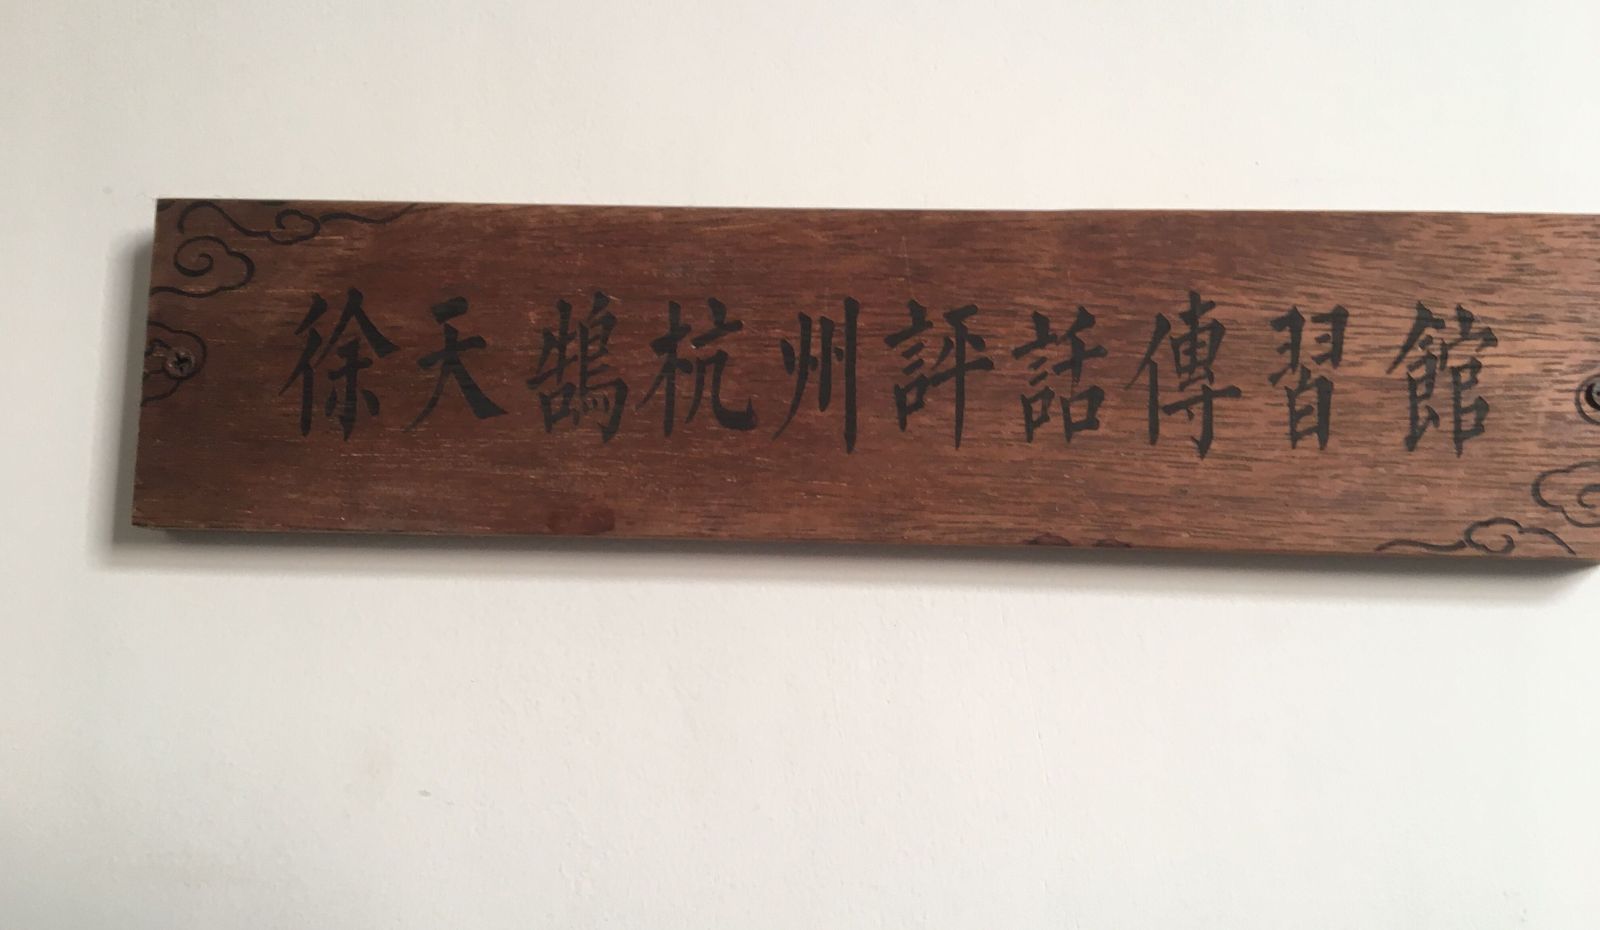 徐天鵠杭州評話傳習館